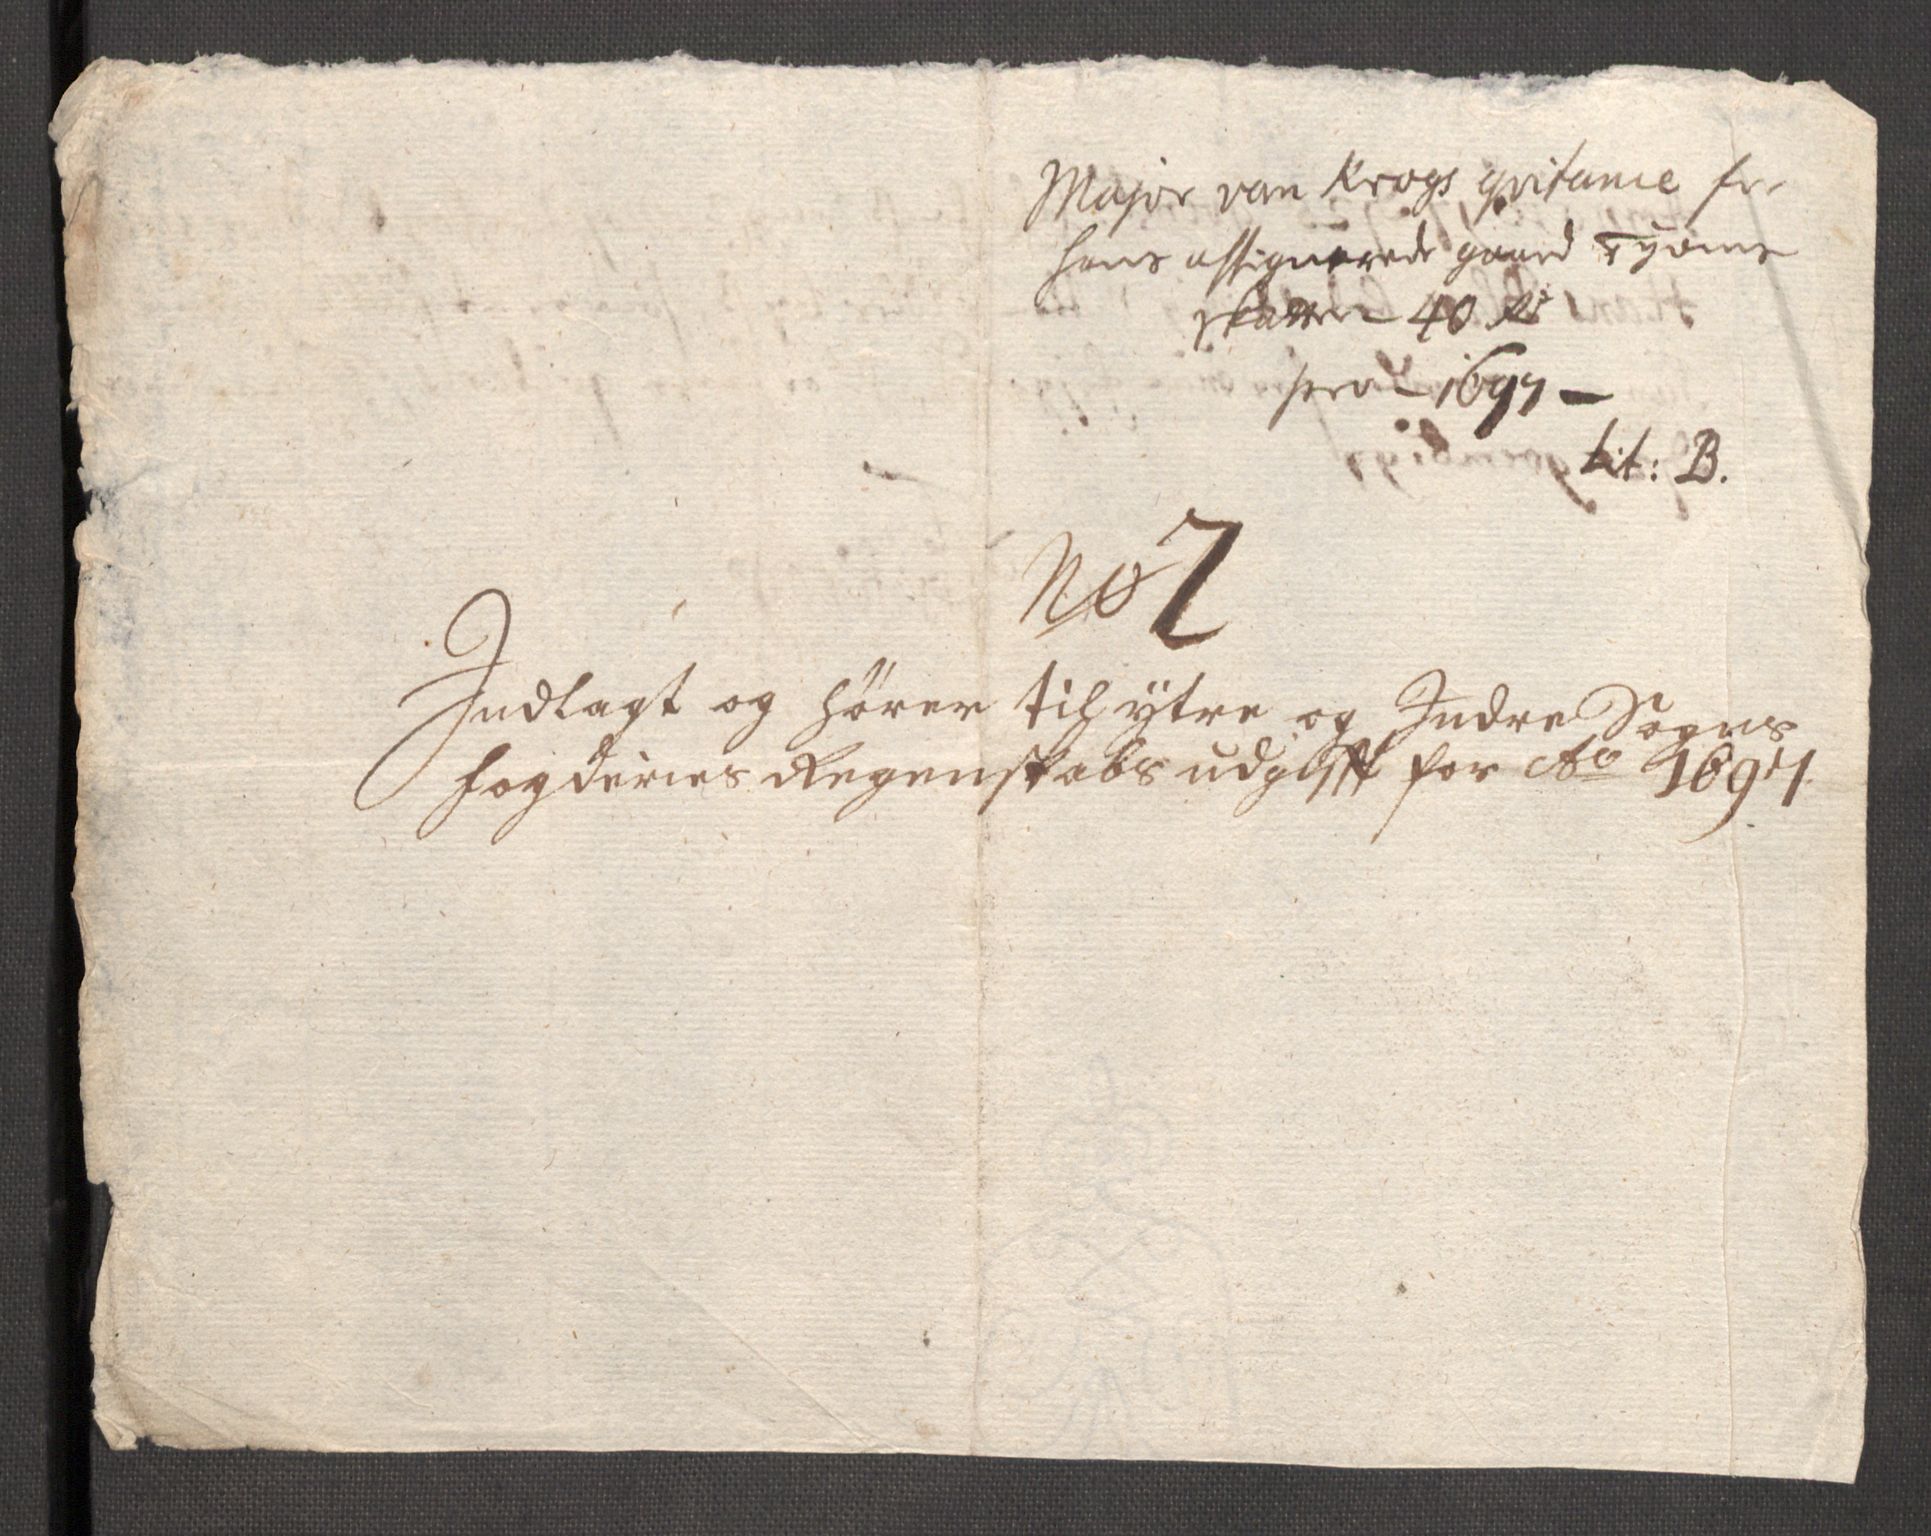 Major van Krogs qvitanie for
hans assignerede gaard Tyoms
skatter 40 Rd
pro 1697 —
Lit: B.
No 7
Indlagt og hörer til ytre og Indre Sogns
fogderies Regenskabs udgifft for Ao 1697